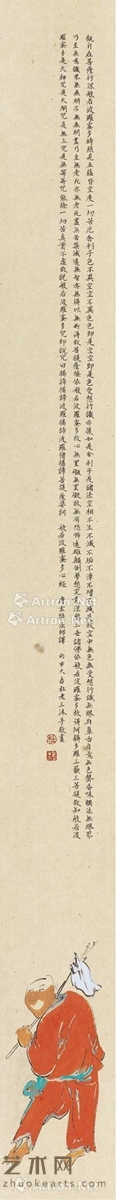 觀自在菩薩行深般若波羅蜜多時照見五蘊皆空度一切苦厄舍利子色不異空空不異色色即是空空即是色受想行識亦復如是舍利子是諸法空相不生不滅不垢不淨不增不減是故空中無色無受想行識無眼耳鼻舌身意無色聲香味觸法無眼界
乃至無意識界無無明亦無無明盡乃至無老死亦無老死盡無苦集滅道無智亦無得以無所得故菩提薩埵依般若波羅蜜多故心無罣礙無罣礙故無有恐怖遠離顛倒夢想究竟涅槃三世諸佛依般若波羅蜜多故得阿耨多羅三藐三菩提故知般若波
羅蜜多是大神咒是大明咒是無上咒是無等等咒能除一切苦真實不虛故說般若波羅蜜多咒即說咒曰揭諦揭諦波羅揭諦波羅僧揭諦菩提薩婆訶 般若波羅蜜多心經 唐玄奘法師譯
艺术网
zhuokearts.com